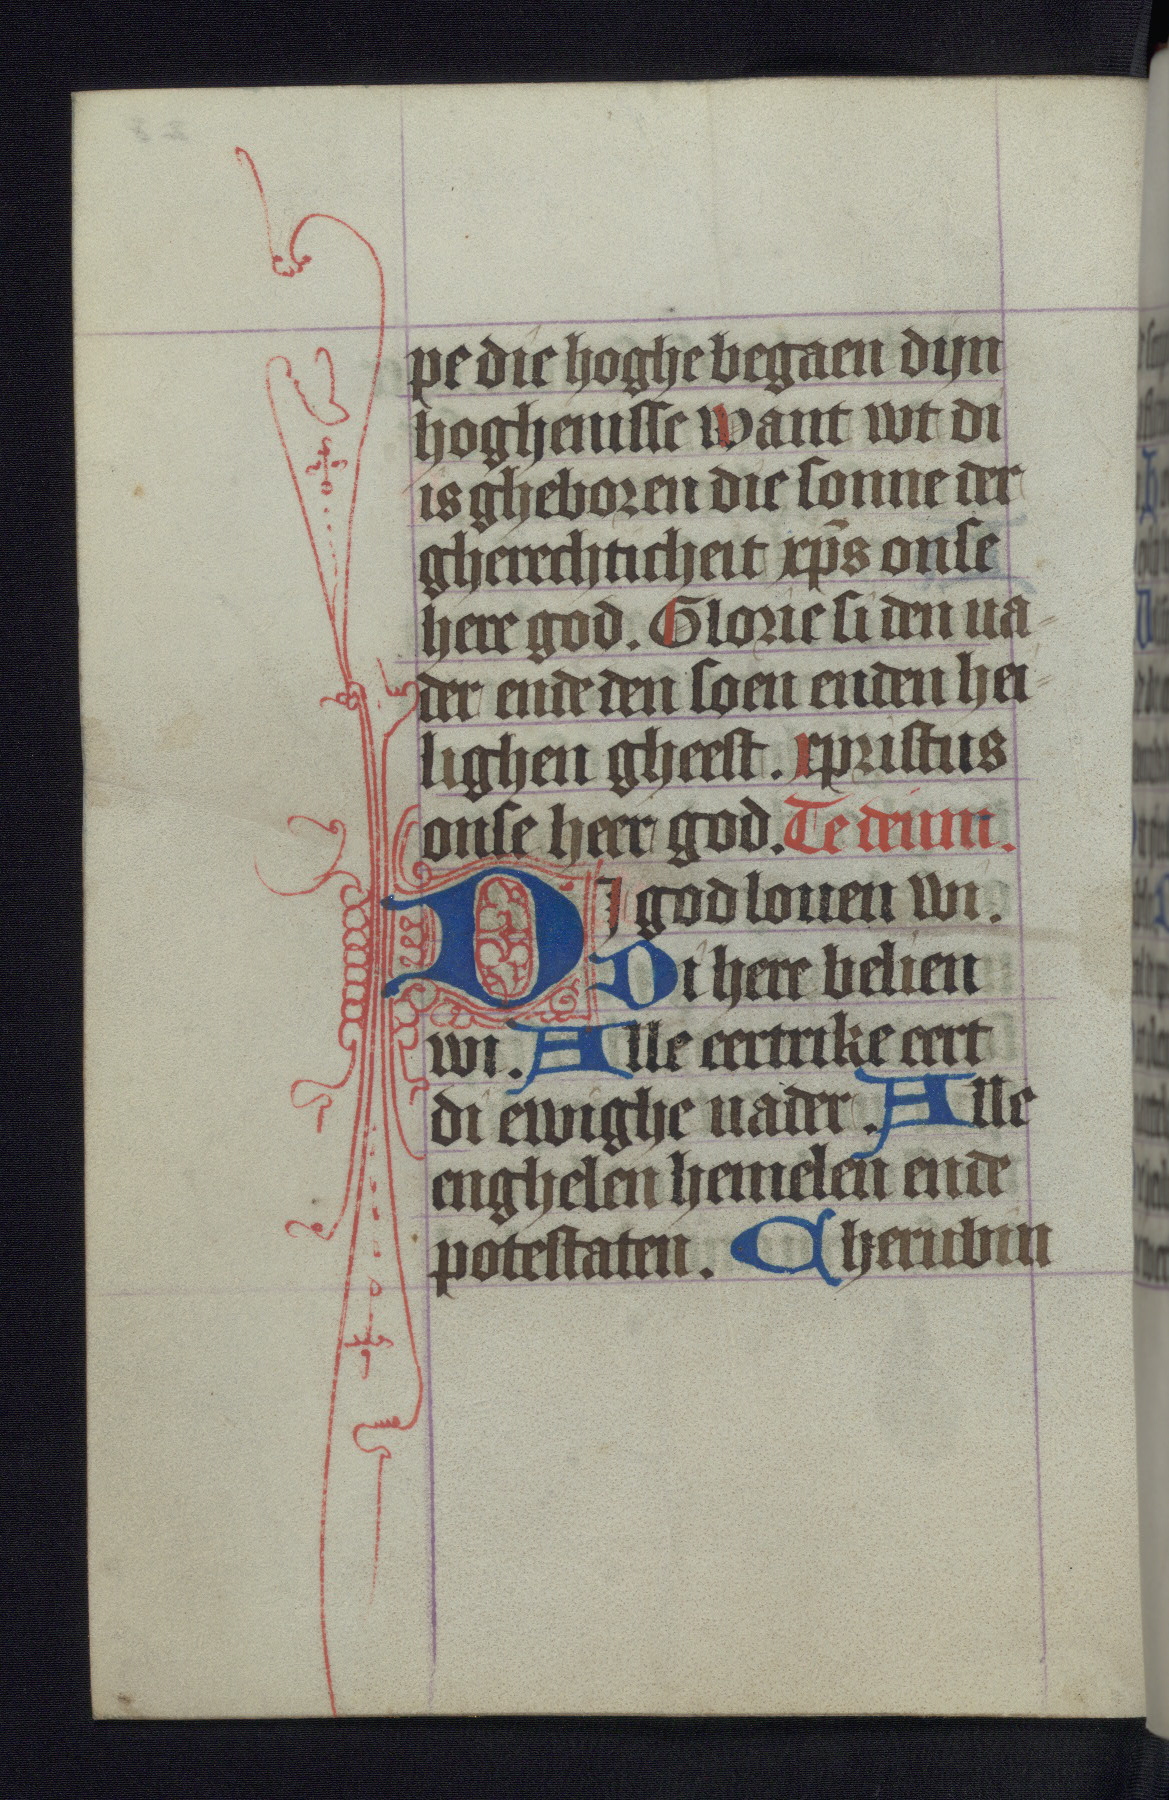 pe die hoghe begaen dijn
hoghenisse want wt di
is gheboren die sonne der
gherechticheit xp̄s onse
here god. Glorie si den ua-
der ende den soen enden hei-
lighen gheest. xpristus
onse heer god. Te deum.
DJ god louen wi.
Di here belien
wi. Alle eertrike eert
di ewighe uader. Alle
enghelen hemelen ende
potestaten. Cherubin